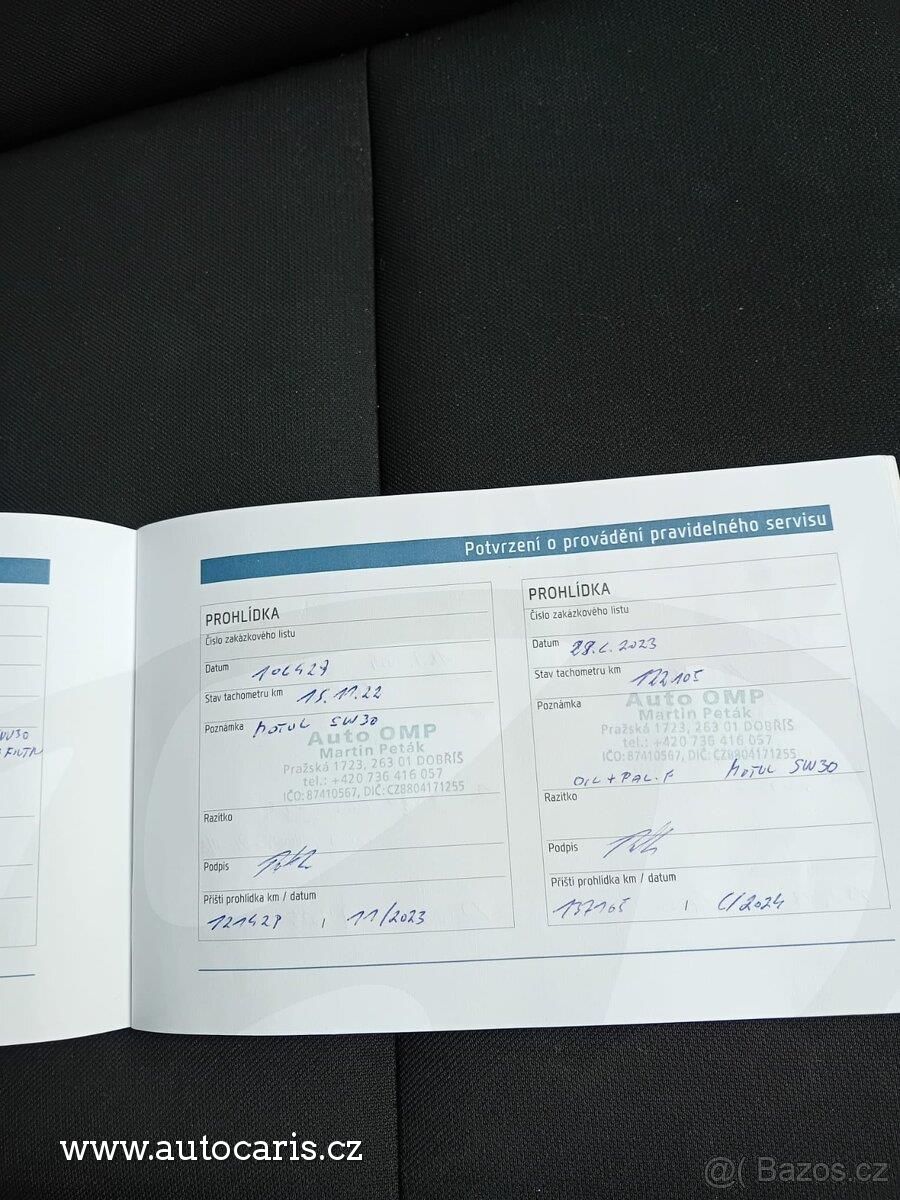 W30
FILTR
Potvrzení o provádění pravidelného servisu
PROHLÍDKA
Číslo zakázkového listu
Datum 106427
Stav tachometru km 15.11.22
Poznámka MOTUL 5W30
Auto OMP
Martin Peták
Pražská 1723, 263 01 DOBŘÍŠ
tel.: +420 736 416 057
IČO: 87410567, DIČ: CZ8804171255
Razítko
Podpis
Příští prohlídka km / datum
121427 , 11/2023
PROHLÍDKA
Číslo zakázkového listu
Datum 29.6.2023
Stav tachometru km 122105
Poznámka
Auto OMP
Martin Peták
Pražská 1723, 263 01 DOBŘÍŠ
tel.: +420 736 416 057
IČO: 87410567, DIČ: CZ8804171255
OIL + PAL. F MOTUL 5W30
Razítko
Podpis
Příští prohlídka km / datum
137105 , 6/2024
www.autocaris.cz
@( Bazos.cz